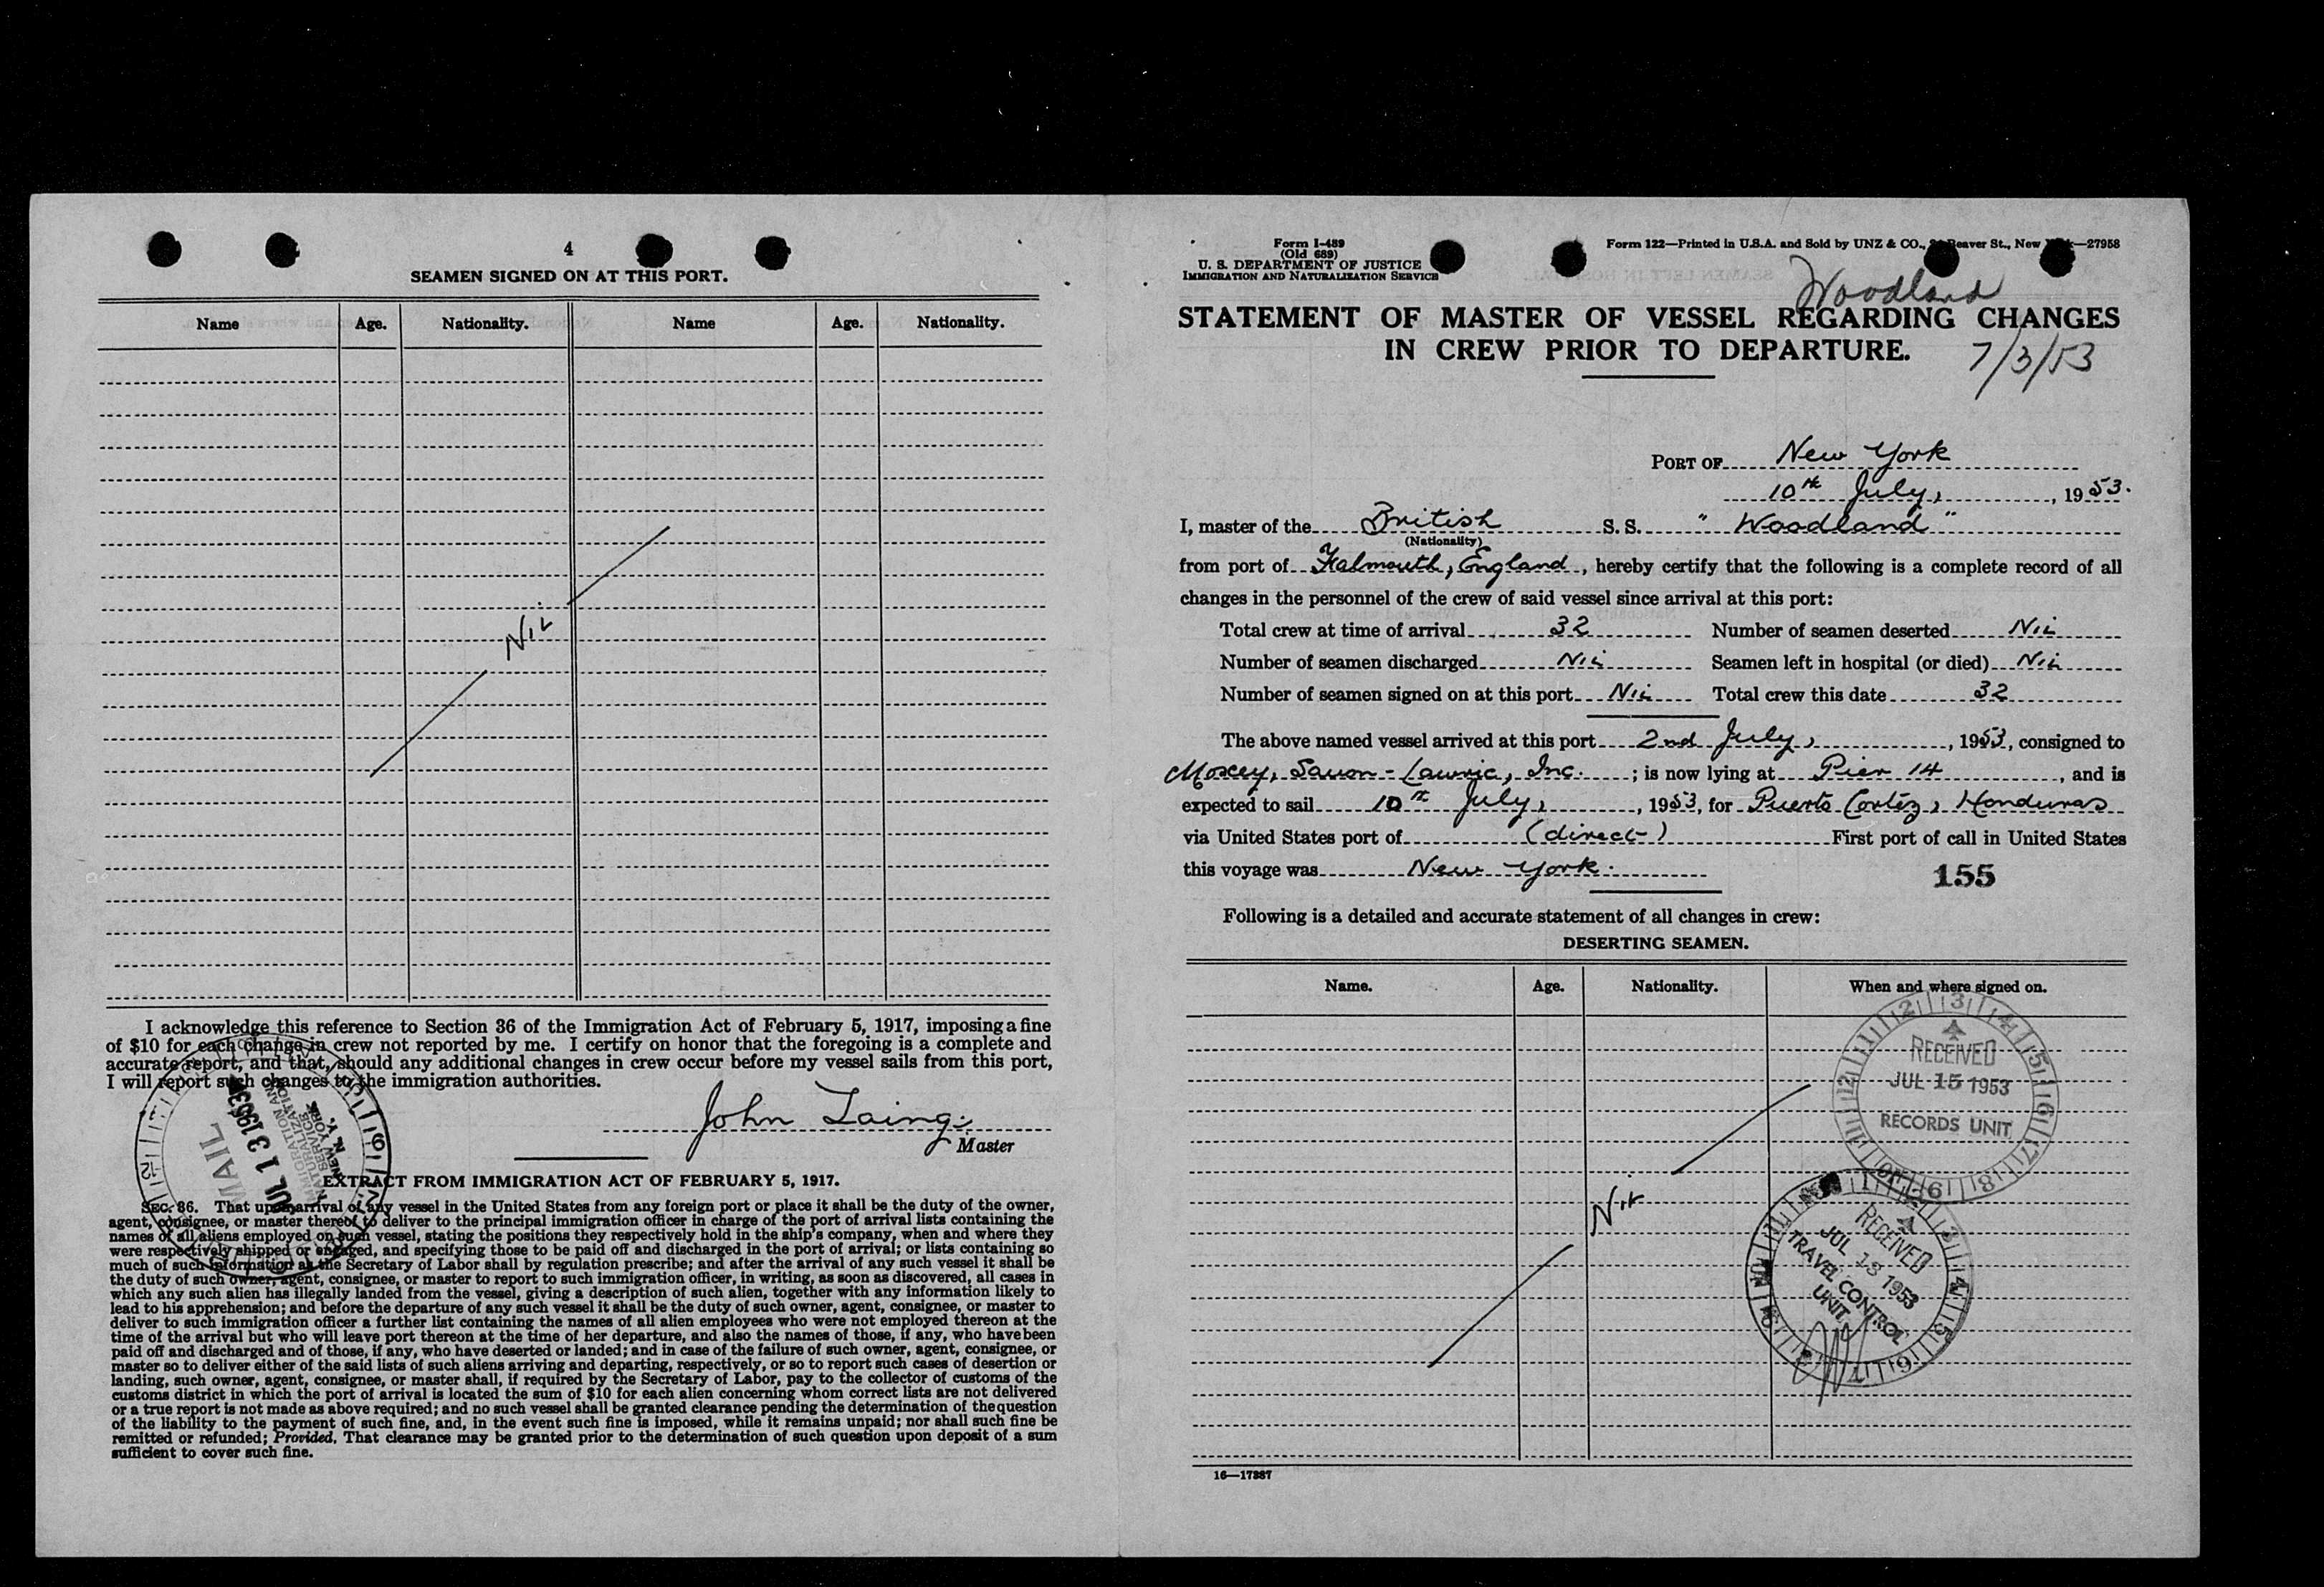 4
SEAMEN SIGNED ON AT THIS PORT.
Name Age. Nationality. Name Age. Nationality.
Nil
I acknowledge this reference to Section 36 of the Immigration Act of February 5, 1917, imposing a fine
of $10 for each change in crew not reported by me. I certify on honor that the foregoing is a complete and
accurate report, and that, should any additional changes in crew occur before my vessel sails from this port,
I will report such changes to the immigration authorities.
John Laing
Master
MAIL
JUL 13 1953
IMMIGRATION AND
NATURALIZATION
SERVICE
NEW YORK
N. Y.
EXTRACT FROM IMMIGRATION ACT OF FEBRUARY 5, 1917.
SEC. 36. That upon arrival of any vessel in the United States from any foreign port or place it shall be the duty of the owner,
agent, consignee, or master thereof to deliver to the principal immigration officer in charge of the port of arrival lists containing the
names of all aliens employed on such vessel, stating the positions they respectively hold in the ship's company, when and where they
were respectively shipped or engaged, and specifying those to be paid off and discharged in the port of arrival; or lists containing so
much of such information as the Secretary of Labor shall by regulation prescribe; and after the arrival of any such vessel it shall be
the duty of such owner, agent, consignee, or master to report to such immigration officer, in writing, as soon as discovered, all cases in
which any such alien has illegally landed from the vessel, giving a description of such alien, together with any information likely to
lead to his apprehension; and before the departure of any such vessel it shall be the duty of such owner, agent, consignee, or master to
deliver to such immigration officer a further list containing the names of all alien employees who were not employed thereon at the
time of the arrival but who will leave port thereon at the time of her departure, and also the names of those, if any, who have been
paid off and discharged and of those, if any, who have deserted or landed; and in case of the failure of such owner, agent, consignee, or
master so to deliver either of the said lists of such aliens arriving and departing, respectively, or so to report such cases of desertion or
landing, such owner, agent, consignee, or master shall, if required by the Secretary of Labor, pay to the collector of customs of the
customs district in which the port of arrival is located the sum of $10 for each alien concerning whom correct lists are not delivered
or a true report is not made as above required; and no such vessel shall be granted clearance pending the determination of the question
of the liability to the payment of such fine, and, in the event such fine is imposed, while it remains unpaid; nor shall such fine be
remitted or refunded; Provided, That clearance may be granted prior to the determination of such question upon deposit of a sum
sufficient to cover such fine.
Form I-489
(Old 689)
U. S. DEPARTMENT OF JUSTICE
IMMIGRATION AND NATURALIZATION SERVICE
Form 122—Printed in U.S.A. and Sold by UNZ & CO., Beaver St., New —27958
Woodland
STATEMENT OF MASTER OF VESSEL REGARDING CHANGES
IN CREW PRIOR TO DEPARTURE.
7/3/53
PORT OF New York
10th July, , 1953.
I, master of the British S. S. "Woodland"
(Nationality)
from port of Falmouth, England, hereby certify that the following is a complete record of all
changes in the personnel of the crew of said vessel since arrival at this port:
Total crew at time of arrival 32 Number of seamen deserted Nil
Number of seamen discharged Nil Seamen left in hospital (or died) Nil
Number of seamen signed on at this port Nil Total crew this date 32
The above named vessel arrived at this port 2nd July, , 1953, consigned to
Moxey, Savon-Lawrie, Inc. ; is now lying at Pier 14 , and is
expected to sail 10th July, , 1953, for Puerto Cortéz, Honduras
via United States port of (direct) First port of call in United States
this voyage was New York.
155
Following is a detailed and accurate statement of all changes in crew:
DESERTING SEAMEN.
Name. Age. Nationality. When and where signed on.
RECEIVED
JUL 15 1953
RECORDS UNIT
Nil
RECEIVED
JUL 13 1953
TRAVEL CONTROL
UNIT
16—17337